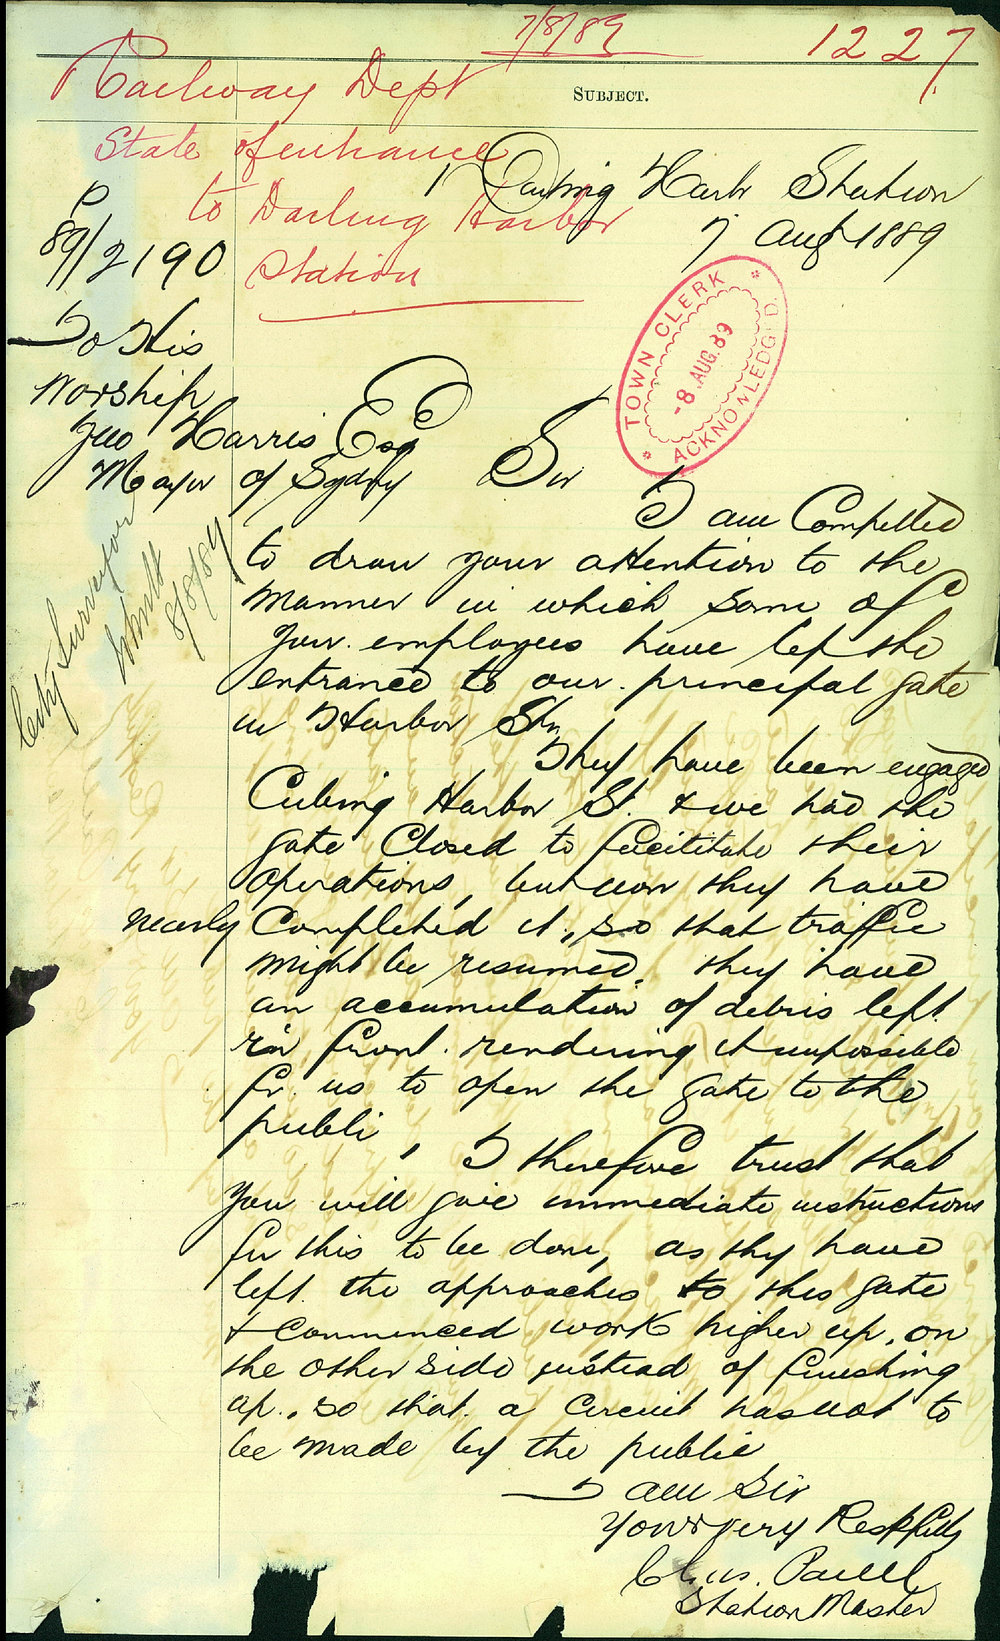 7/8/89
1227
Railway Dept
SUBJECT.
State of entrance
to Darling Harbor
Station
Darling Harbr Station
7 Aug 1889
P
89/2190
TOWN CLERK
-8.AUG.89
ACKNOWLEDGED.
To His
Worship
Geo Harris Esq
Mayor of Sydny
Sir
City Surveyor
8/8/89
I am Compelled
to draw your attention to the
manner in which some of
your employees have left the
entrance to our principal gate
in Harbor Stn
They have been engaged
Cubing Harbor St. & we had the
gate Closed to facititate their
operations, but now they have
nearly Completed it, so that traffic
might be resumed, they have
an accumulation of debris left
in front rendering it impossible
for us to open the gate to the
public, I therefore trust that
You will give immediate instructions
for this to be done, as they have
left the approaches to this gate
& commenced work higher up, on
the other side instead of finishing
up, so that a circuit has not to
be made by the public
I am Sir
Yours very Respfully
Chas.
Station Master